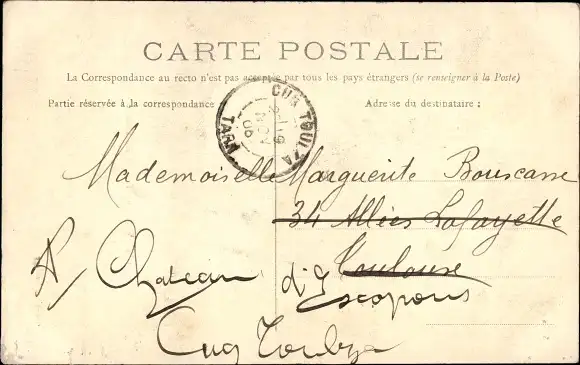 CARTE POSTALE
La Correspondance au recto n'est pas acceptée par tous les pays étrangers (se renseigner à la Poste)
Partie réservée à la correspondance
Adresse du destinataire :
CUQ TOULZA
TARN
Mademoiselle Marguerite Bouscane
34 Allées Lafayette
Toulouse
Château d'Escopous
Cuq Toulza